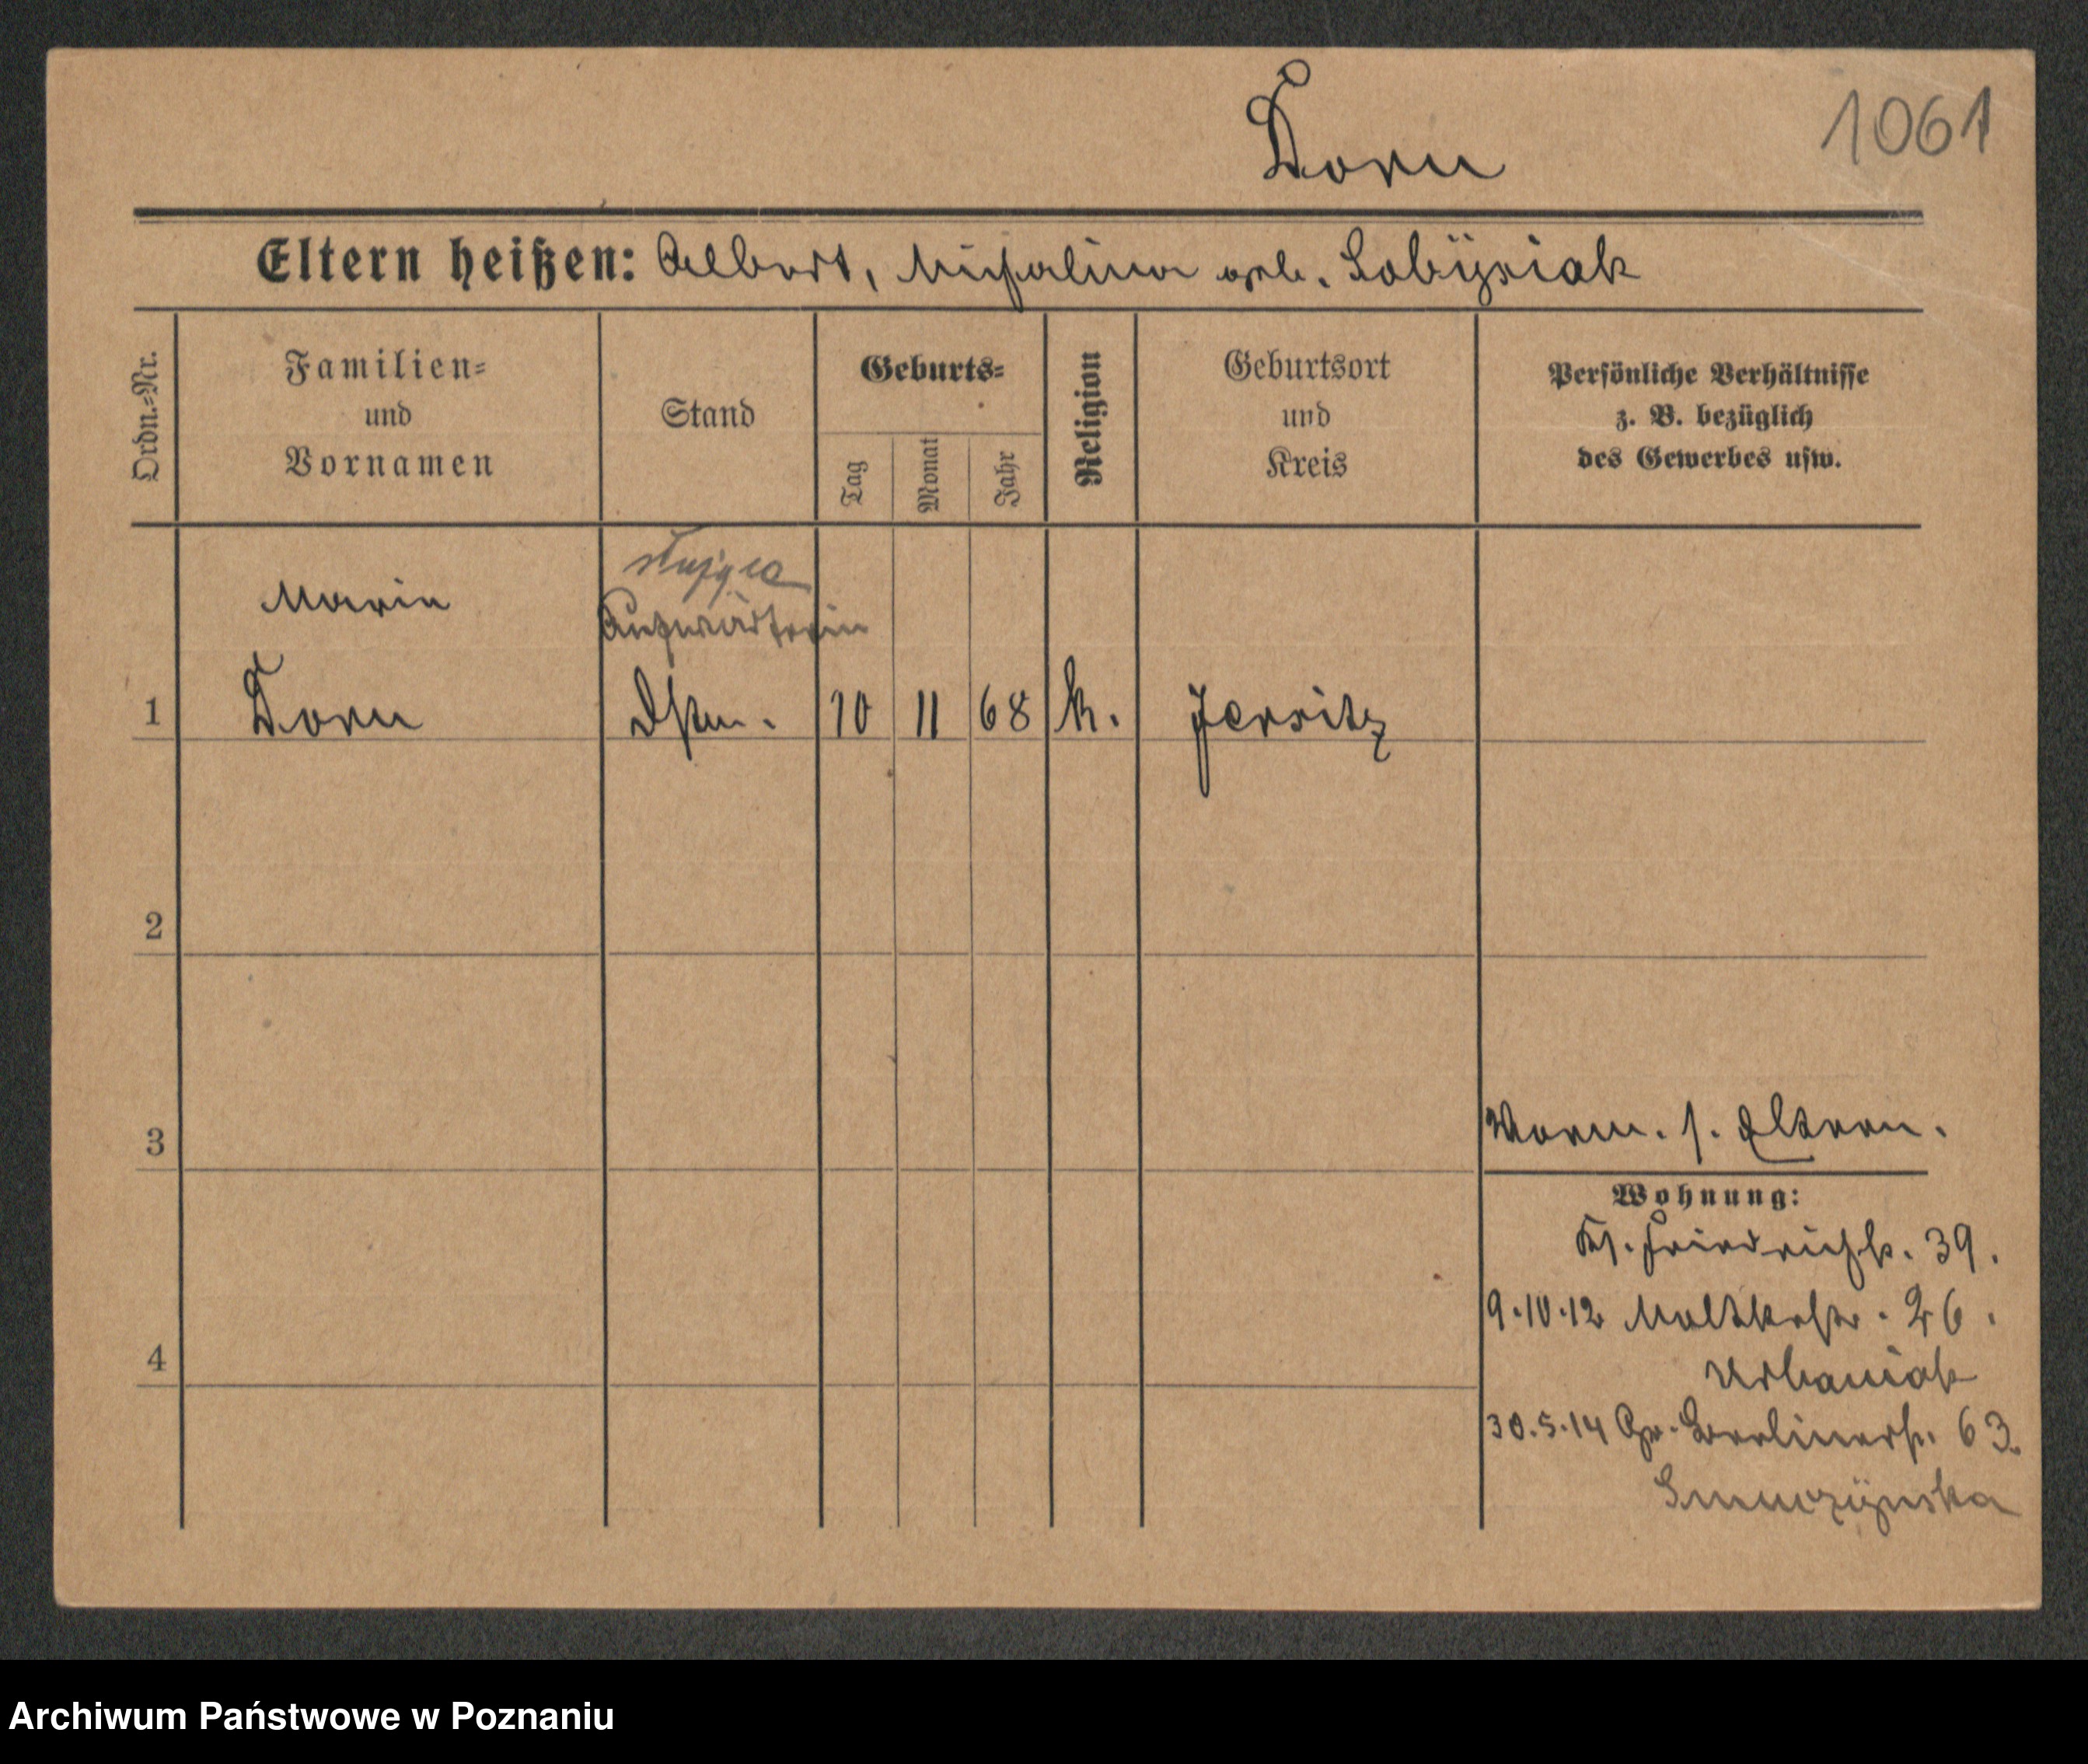 Dorn
1061
Eltern heißen: Albert, Michalina geb. Sobÿsiak
Ordn.=Nr.
Familien=
und
Vornamen
Stand
Geburts=
Tag
Monat
Jahr
Religion
Geburtsort
und
Kreis
Persönliche Verhältnisse
z. B. bezüglich
des Gewerbes usw.
służąca
Aufwärterin
Marie
1 Dorn Dstm. 10 11 68 k. Jersitz
2
3
Vorm. s. Eltern.
Wohnung:
Ks. Friedrichstr. 39.
9.10.12 Moltkestr. 26.
Urbaniak
4
30.5.14 Gr. Berlinerstr. 63.
Archiwum Państwowe w Poznaniu